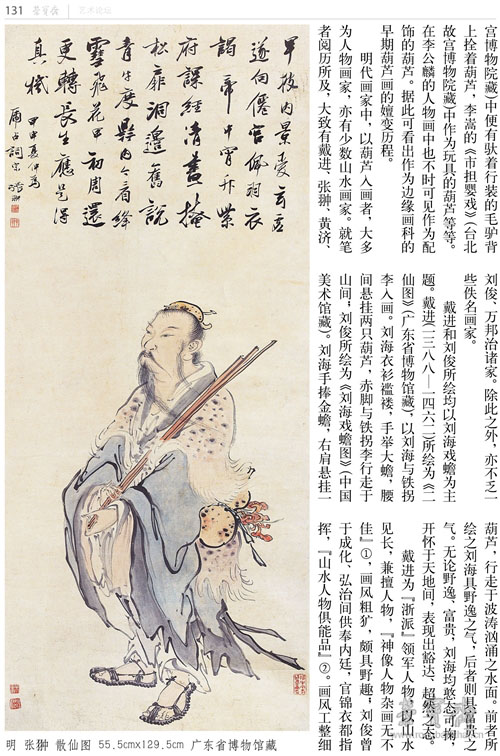 131 荣宝斋 艺术论坛
宫博物院藏)中便有驮着行装的毛驴背
上拴着葫芦，李嵩的《市担婴戏》(台北
故宫博物院藏)中作为玩具的葫芦等等。
在李公麟的人物画中也不时可见作为配
饰的葫芦。据此可看出作为边缘画科的
早期葫芦画的嬗变历程。
明代画家中，以葫芦入画者，大多
为人物画家，亦有少数山水画家。就笔
者阅历所及，大致有戴进、张翀、黄济、
刘俊、万邦治诸家。除此之外，亦不乏一
些佚名画家。
戴进和刘俊所绘均以刘海戏蟾为主
题。戴进(一三八八—一四六二)所绘为《二
仙图》(广东省博物馆藏)，以刘海与铁拐
李入画。刘海衣衫褴褛，手举大蟾，腰
间悬挂两只葫芦，赤脚与铁拐李行走于
山间；刘俊所绘为《刘海戏蟾图》(中国
美术馆藏)。刘海手捧金蟾，右肩悬挂一
葫芦，行走于波涛汹涌之水面。前者所
绘之刘海具野逸之气，后者则具富贵之
气。无论野逸、富贵，刘海均憨态可掬，
开怀于天地间，表现出豁达、超然之态。
戴进为『浙派』领军人物，以山水
见长，兼擅人物，『神像人物杂画无不
佳』①，画风粗犷，颇具野趣，刘俊曾
于成化、弘治间供奉内廷，官锦衣都指
挥，『山水人物俱能品』②。画风工整细
早被内景养玄
遂向僊官佩羽衣
謁帝中霄升紫
府課經清晝掩
松扉洞邊舊說
青牛度縣内今看絳
雪飛花甲初周還
更轉長生應是得
真機 甲申夏仲爲
詞宗 翀
明 张翀 散仙图 55.5cm×129.5cm 广东省博物馆藏